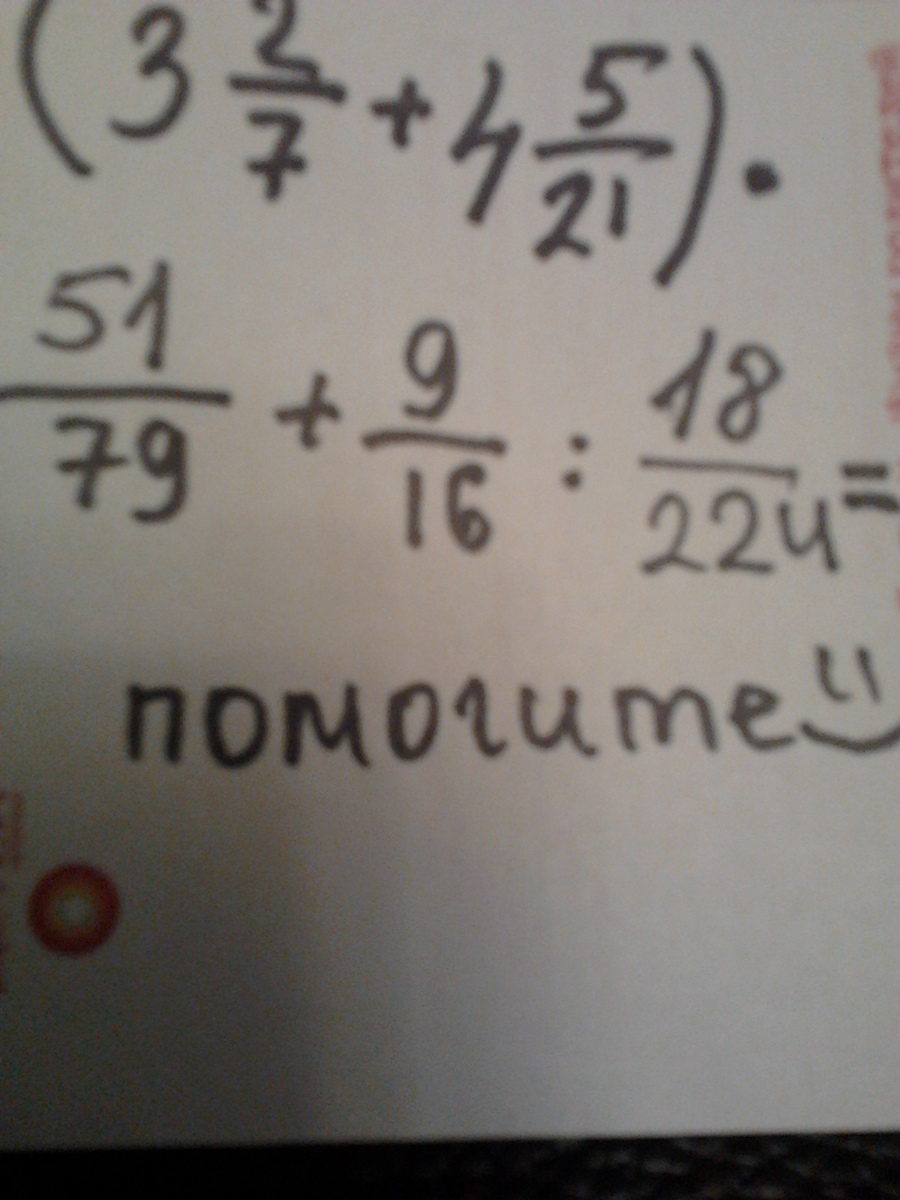 (3 2/7 + 4 5/21) ·
51/79 + 9/16 : 18/224 =
помогите